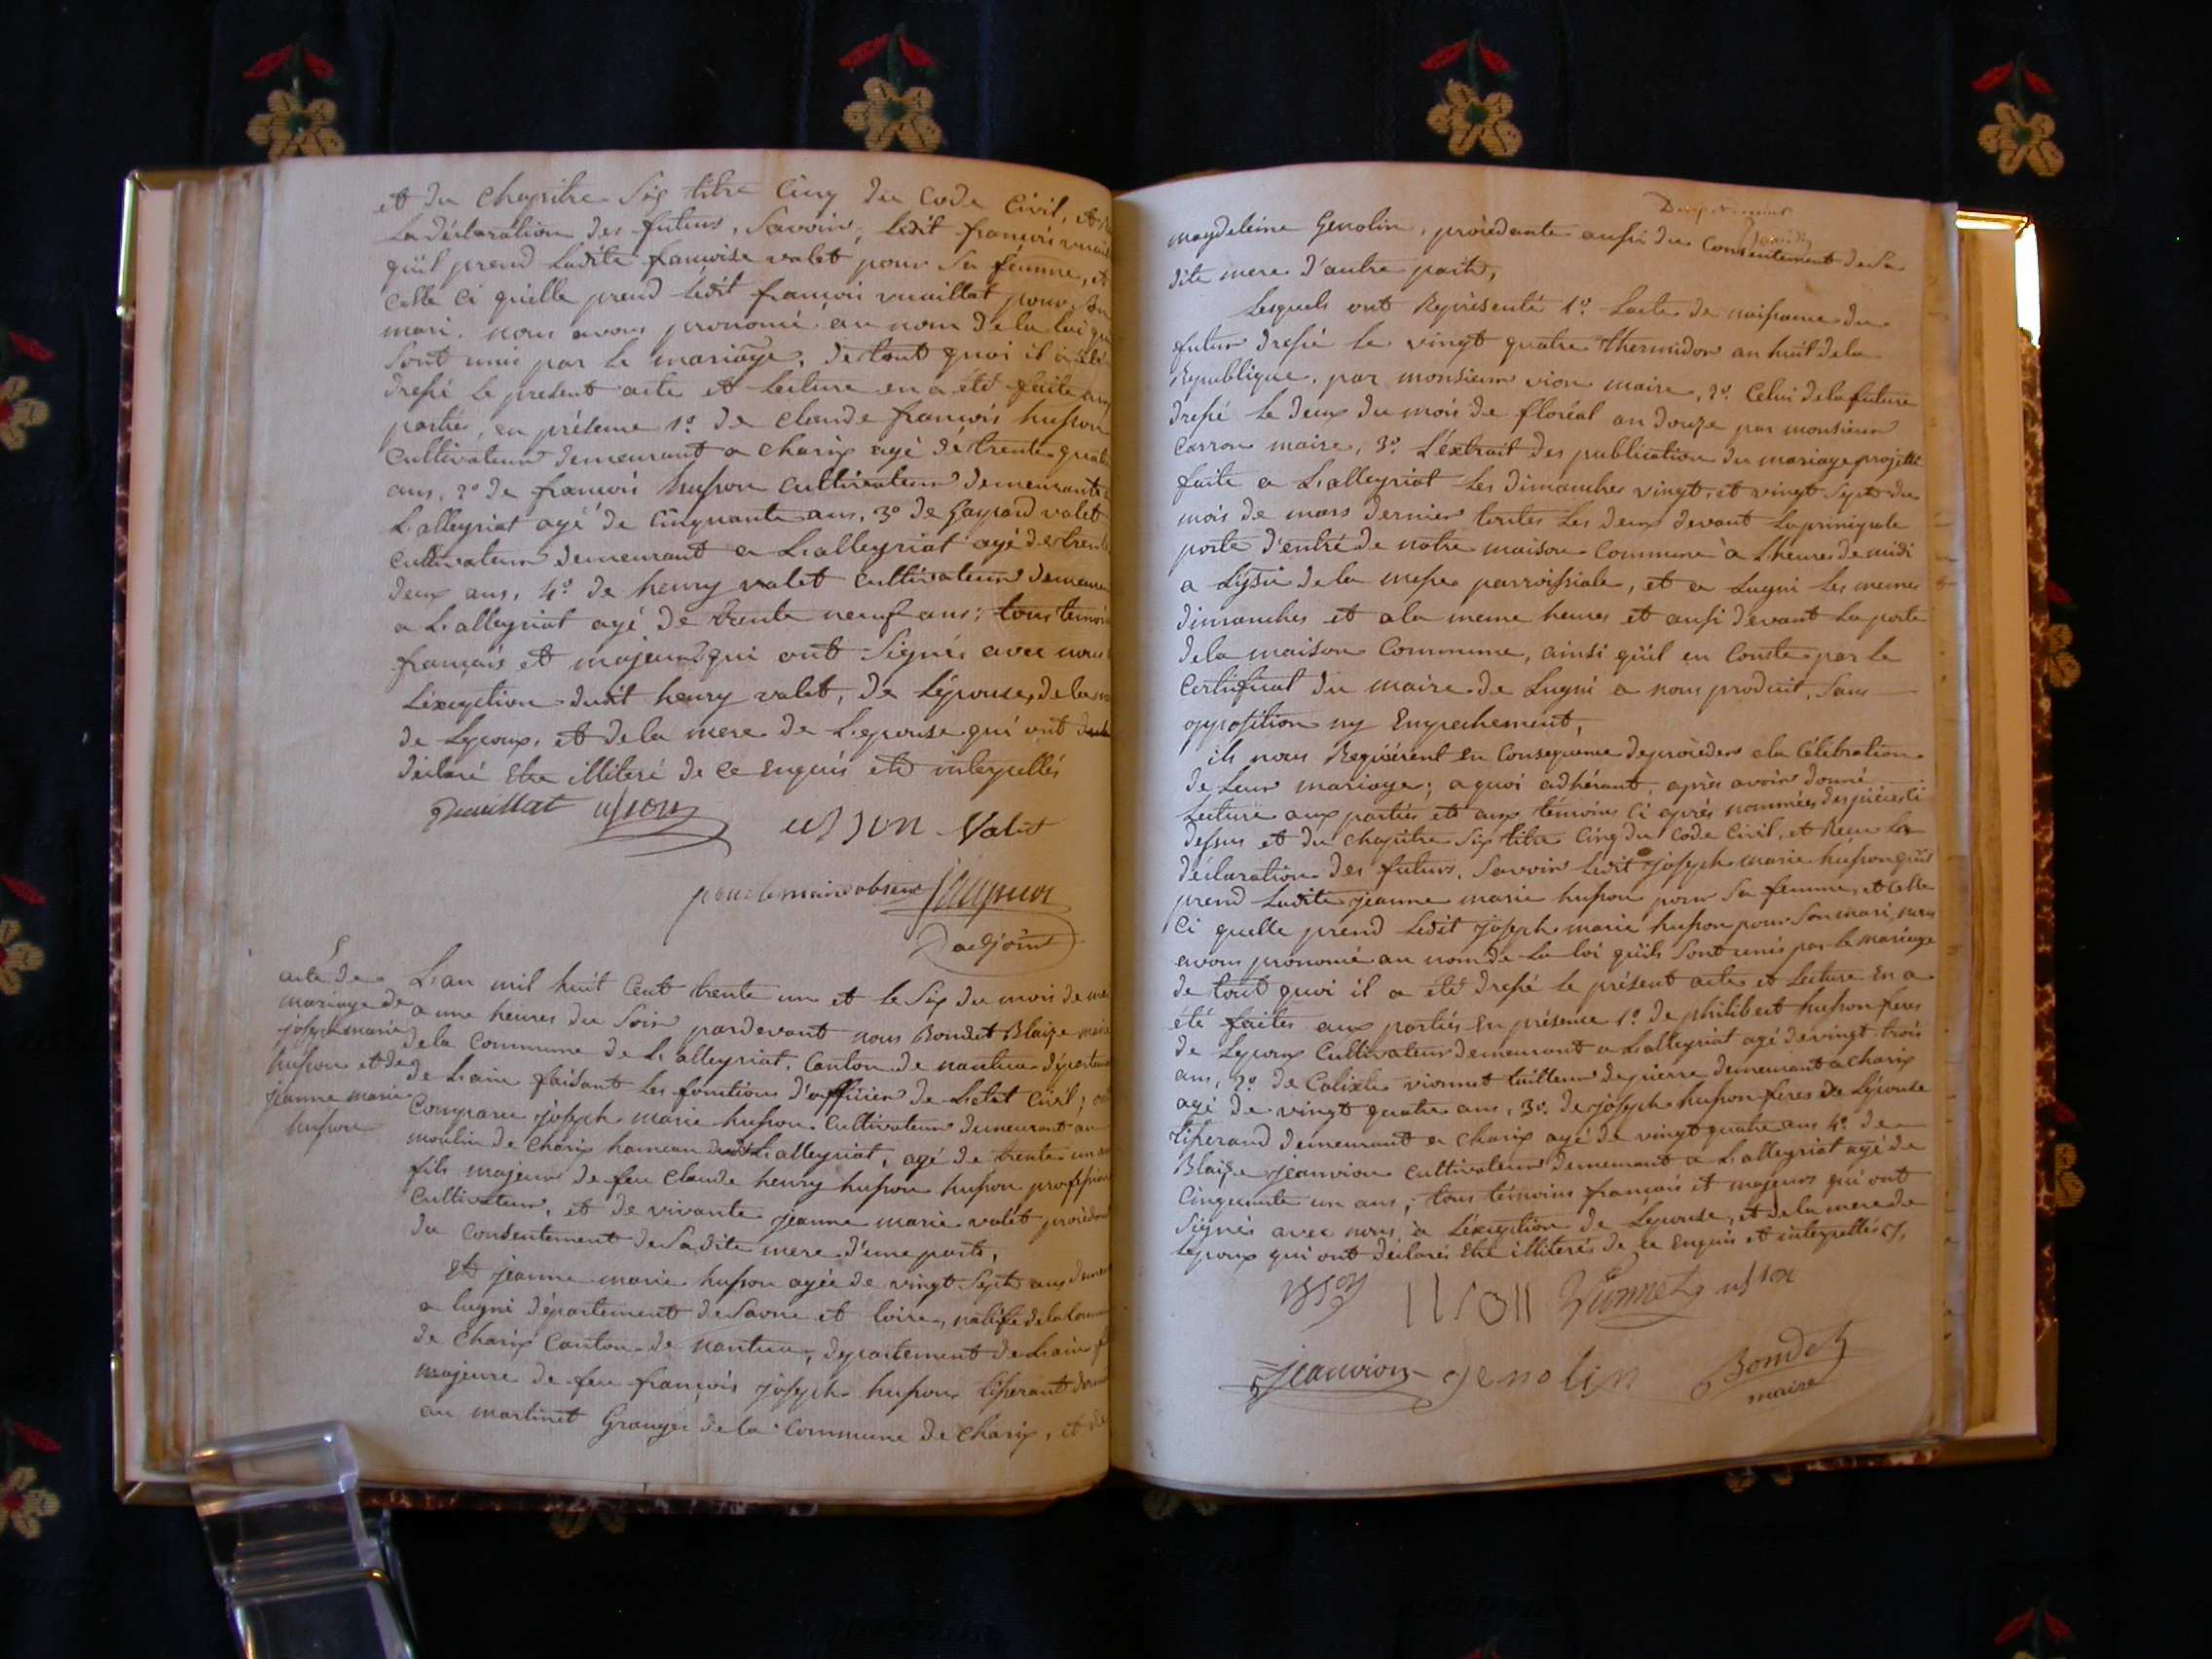 et du chapitre six titre cinq du code civil, et
la déclaration des futurs, savoir, ledit françois
qu'il prend ladite françoise valet pour sa femme, et
celle ci quelle prend ledit françois vuaillat pour
mari. nous avons prononcé au nom de la loi
sont unis par le mariage, de tout quoi il a été
dressé le present acte et lecture en a été faite aux
parties, en présence 1º de claude françois husson
cultivateur demeurant a charix agé de trente quatre
ans, 2º de françois husson cultivateur demeurant
Lalleyriat agé de cinquante ans, 3º de Gaspard valet
cultivateur demeurant a Lalleyriat agé de trente
deux ans, 4º de henry valet cultivateur
a Lalleyriat agé de trente neuf ans; tous
français et majeurs qui ont signés avec nous
L'éxception dudit henry valet, de L'épouse, de la
de Lepoux, et de la mere de L'epouse qui ont
déclaré etre illiteré de ce enquis et interpellés
Vuaillat usson
usson Valet
pour le maire absent
adjoint
acte de
mariage de
joseph marie
husson et de
jeanne marie
husson
L'an mil huit cent trente un et le six du mois de
a une heures du soir pardevant nous Bondet Blaize maire
de la commune de Lalleyriat, canton de nantua
de Lain faisant les fonctions d'officier de L'etat civil;
comparu joseph marie husson cultivateur demeurant au
moulin de charix hameau dudit Lalleyriat, agé de trente un
fils majeur de feu claude henry husson husson
cultivateur, et de vivante jeanne marie valet
du consentement de sadite mere d'une part,
et jeanne marie husson agée de vingt sept ans
a lugni département de saone et loire, native de la
de charix canton de nantua, département de Lain
majeure de feu françois joseph husson tisserant
au martinet Granges de la commune de charix, et de
magdeleine Genolin, procédante aussi du consentement de sa
dite mere d'autre part,
Lesquels ont Représenté 1º Lacte de naissance du
futur dressé le vingt quatre thermidor an huit de la
Republique, par monsieur vion maire, 2º celui de la future
dressé le deux du mois de floréal an douze par monsieur
carron maire, 3º L'éxtrait des publication du mariage projetté
faite a Lalleyriat les dimanches vingt et vingt sept du
mois de mars dernier toutes les deux devant la principale
porte d'entré de notre maison commune a Lheure de midi
a L'issu de la messe parroissiale, et a Lugni les memes
dimanches et a la meme heures et aussi devant la porte
de la maison commune, ainsi qu'il en conste par le
certificat du maire de Lugni a nous produit, sans
opposition ny Empechement,
ils nous Requièrent en consequence de procèder a la célébration
de leur mariage; a quoi adhérant, après avoir donné
lecture aux parties et aux témoins ci après nommées des pièces ci
dessus et du chapitre six titre cinq du code civil, et Recu la
déclaration des futurs, savoir ledit joseph marie husson qu'il
prend ladite jeanne marie husson pour sa femme, et celle
ci quelle prend ledit joseph marie husson pour son mari, nous
avons prononcé au nom de la loi qu'ils sont unis par le mariage
de tout quoi il a été dressé le présent acte et lecture en a
été faites aux parties en présence 1º de philibert husson freres
de Lepoux cultivateur demeurant a Lalleyriat agé de vingt trois
ans, 2º de Calixte vionnet tailleur de pierre demeurant a charix
agé de vingt quatre ans, 3º de joseph husson freres de L'épouse
tisserand demeurant a charix agé de vingt quatre ans 4º de
Blaize jeanvion cultivateur demeurant a Lalleyriat agé de
cinquante un ans; tous témoins français et majeurs qui ont
signés avec nous, a L'éxception de Lepouse, et de la mere de
Lepoux qui ont déclarés etre illiterés de ce enquis et interpellés
usson Vionnet usson
jeanvion genolin Bondet
maire